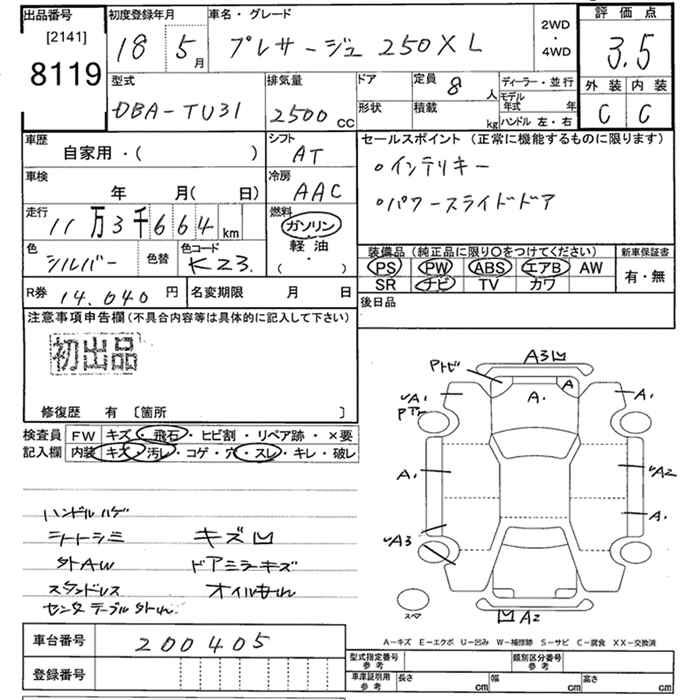 出品番号
[2141]
8119
初度登録年月
18 5月
車名・グレード
プレサージュ 250XL
2WD
・
4WD
評価点
3.5
外装 内装
C C
型式
DBA-TU31
排気量
2500cc
ドア
形状
定員 8人
積載 kg
ディーラー・並行
モデル年式 年
ハンドル 左・右
車歴
自家用・( )
シフト
AT
車検
年 月( 日)
冷房
AAC
走行
11万3千664km
燃料
ガソリン
・
軽油
( ・ )
色
シルバー
色替
色コード
K23.
R券 14.040円
名変期限 月 日
セールスポイント (正常に機能するものに限ります)
・インテリキー
・パワースライドドア
装備品(純正品に限り〇をつけてください)
PS PW ABS エアB AW
SR ナビ TV カワ
新車保証書
有・無
後日品
注意事項申告欄(不具合内容等は具体的に記入して下さい)
初出品
修復歴 有〔箇所 〕
検査員
記入欄
FW キズ・飛石・ヒビ割・リペア跡・×要
内装 キズ・汚レ・コゲ・穴・スレ・キレ・破レ
ハンドルハゲ
シートシミ キズ凹
外AW ドアミラーキズ
スタンドレス オイルもれ
センターテーブル外れ
A3凹
Pトビ
A
A・
√A1
A1
A1
√A2
A1
√A3
スペア
凹A2
A-キズ E-エクボ U-凹み W-補修跡 S-サビ C-腐食 XX-交換済
車台番号 200405
登録番号
型式指定番号
参考
類別区分番号
参考
車庫証明用
参考
長さ cm 幅 cm 高さ cm